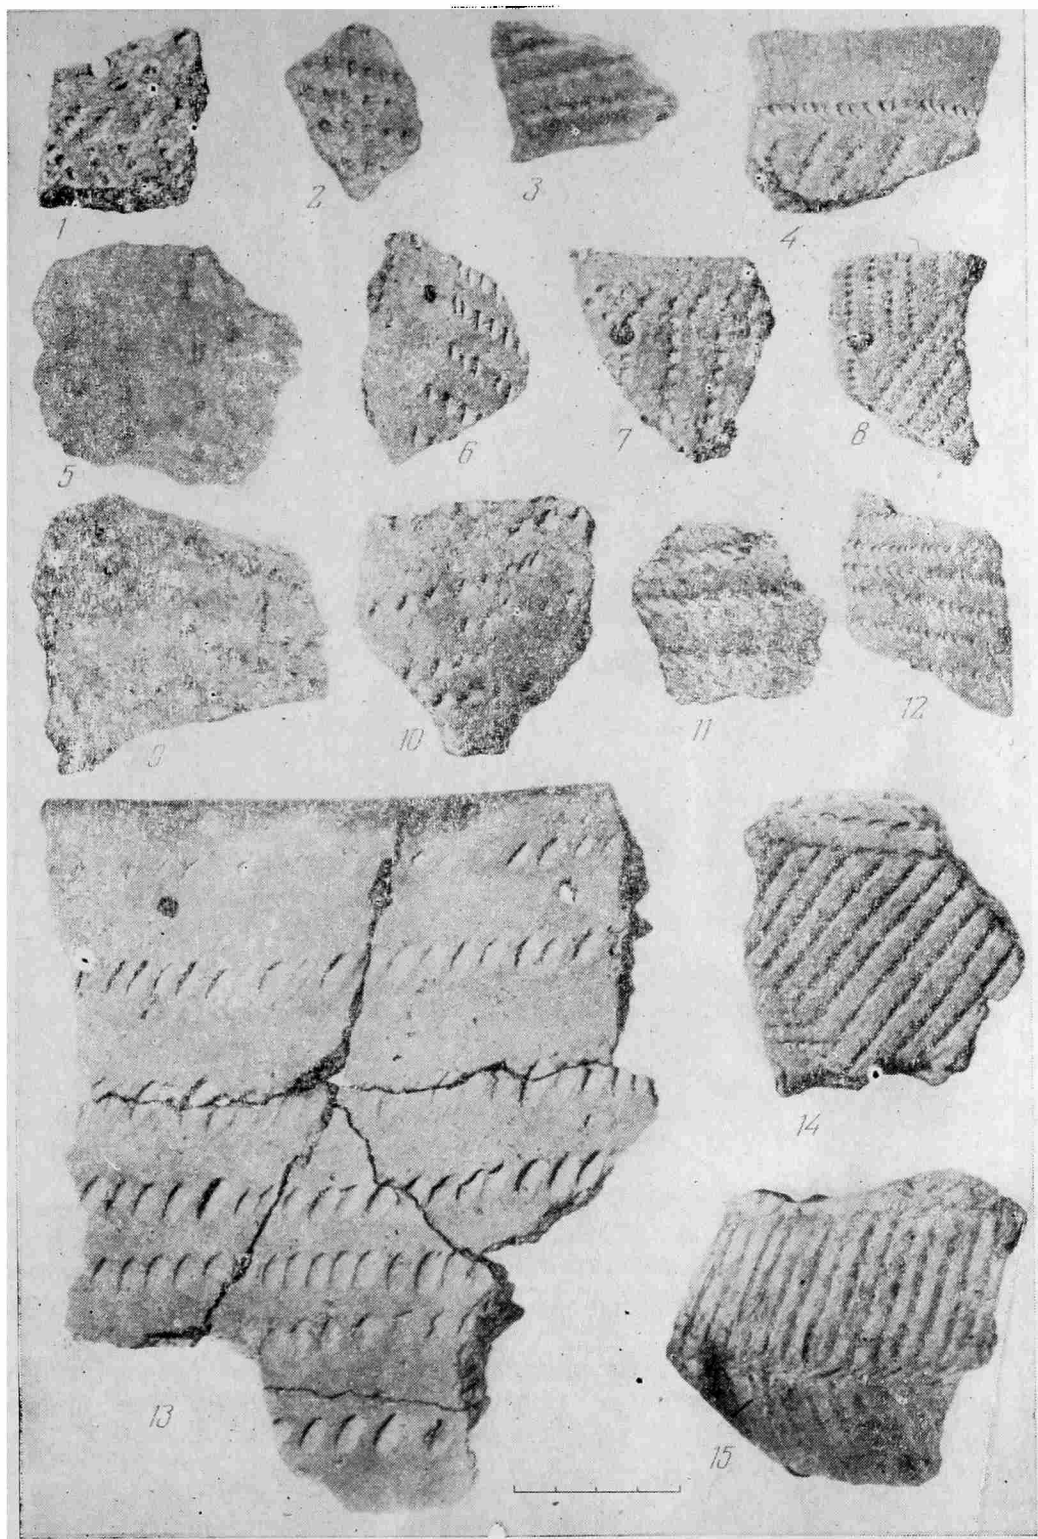 1 2 3 4
5 6 7 8
9 10 11 12
13 14
15